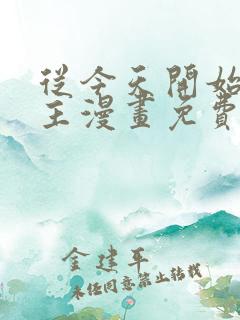 從今天開始
王漫畫免費
金建平
未經同意禁止轉載